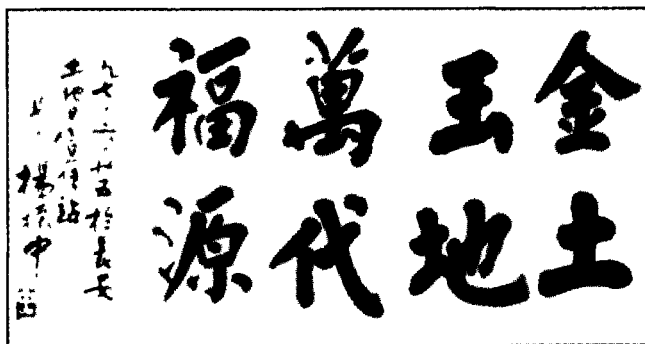 金土
玉地
萬代
福源
九七·六·廿五於長安
土地日
楊振中